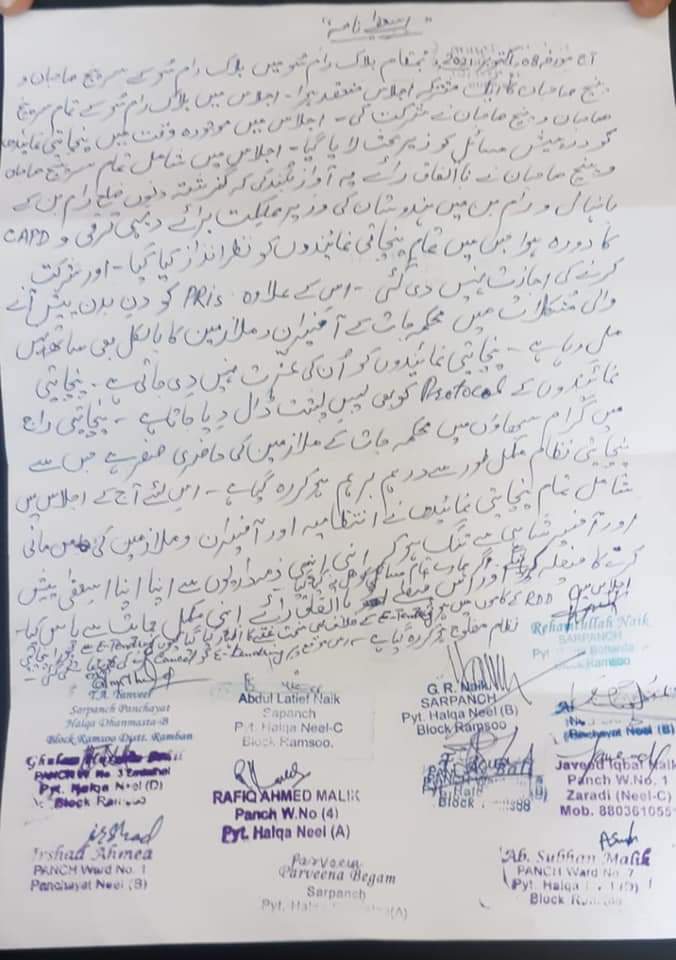 "استعفیٰ نامہ"
آج مورخہ 08 اکتوبر 2021، بمقام بلاک رام سو میں بلاک رام سو کے سرپنچ صاحبان و
پنچ صاحبان کا ایک مشترکہ اجلاس منعقد ہوا۔ اجلاس میں بلاک رام سو کے تمام سرپنچ
صاحبان و پنچ صاحبان نے شرکت کی۔ اجلاس میں موجودہ وقت میں پنچائتی نمائندوں
کو درپیش مسائل کو زیر بحث لایا گیا۔ اجلاس میں شامل تمام سرپنچ صاحبان
و پنچ صاحبان نے بااتفاق رائے یہ آواز بلند کی کہ گزشتہ دنوں ضلع رام بن کے
بانہال و رام بن میں ہندوستان کی وزیر مملکت برائے دیہی ترقی و CAPD
کا دورہ ہوا جس میں تمام پنچائتی نمائندوں کو نظر انداز کیا گیا۔ اور شرکت
کرنے کی اجازت نہیں دی گئی۔ اس کے علاوہ PRIs کو دن بدن پیش آنے
والی مشکلات میں محکمہ جات کے آفیسران و ملازمین کا بالکل بھی ساتھ نہیں
مل رہا ہے۔ پنچائتی نمائندوں کو اُن کی عزت نہیں دی جاتی ہے۔ پنچائتی
نمائندوں کے Protocol کو بھی پسِ پشت ڈال دیا جاتا ہے۔ پنچائتی راج
میں گرام سبھاؤں میں محکمہ جات کے ملازمین کی حاضری صفر ہے جس سے
پنچائتی نظام مکمل طور سے درہم برہم ہو کر رہ گیا ہے۔ اس لئے آج کے اجلاس میں
شامل تمام پنچائتی نمائندوں نے انتظامیہ اور آفیسران و ملازمین کی من مانی
اور آفیسر شاہی سے تنگ ہو کر اپنی اپنی ذمہ داریوں سے اپنا اپنا استعفیٰ پیش
کرنے کا فیصلہ کیا اور اس فیصلے کو بااتفاق رائے اپنی مکمل حمایت سے پاس کیا۔
اجلاس میں RDD کے کاموں میں E-Tending کے خلاف بھی سخت غصے کا اظہار کیا گیا کیوں E-Tending سے پورا پنچائتی
نظام مفلوج ہو کر رہ گیا ہے۔ E-Tending کو Cancel
Rehamtullah Naik
SARPANCH
Pyt
Ramsoo
T.A. Tanveer
Sarpanch Panchayat
Halqa Dhanmasta-B
Block Ramsoo Distt. Ramban
Abdul Latief Naik
Sapanch
Pyt. Halqa Neel-C
Block Ramsoo.
G. R. Naik
SARPANCH
Pyt. Halqa Neel (B)
Block Ramsoo
Panchayat Neel (B)
PANCH W. No. 3
Pyt. Halqa Neel (D)
Block Ramsoo
RAFIQ AHMED MALIK
Panch W.No (4)
Pyt. Halqa Neel (A)
Block
Javeed Iqbal Naik
Panch W.No. 1
Zaradi (Neel-C)
Mob. 880361055
Irshad
Irshad Ahmea
PANCH Ward No. 1
Panchayat Neel (B)
Parveen
Parveena Begam
Sarpanch
Pyt. Halqa (A)
Ab. Subhan Malik
PANCH Ward No. 7
Pyt. Halqa
Block Ramsoo